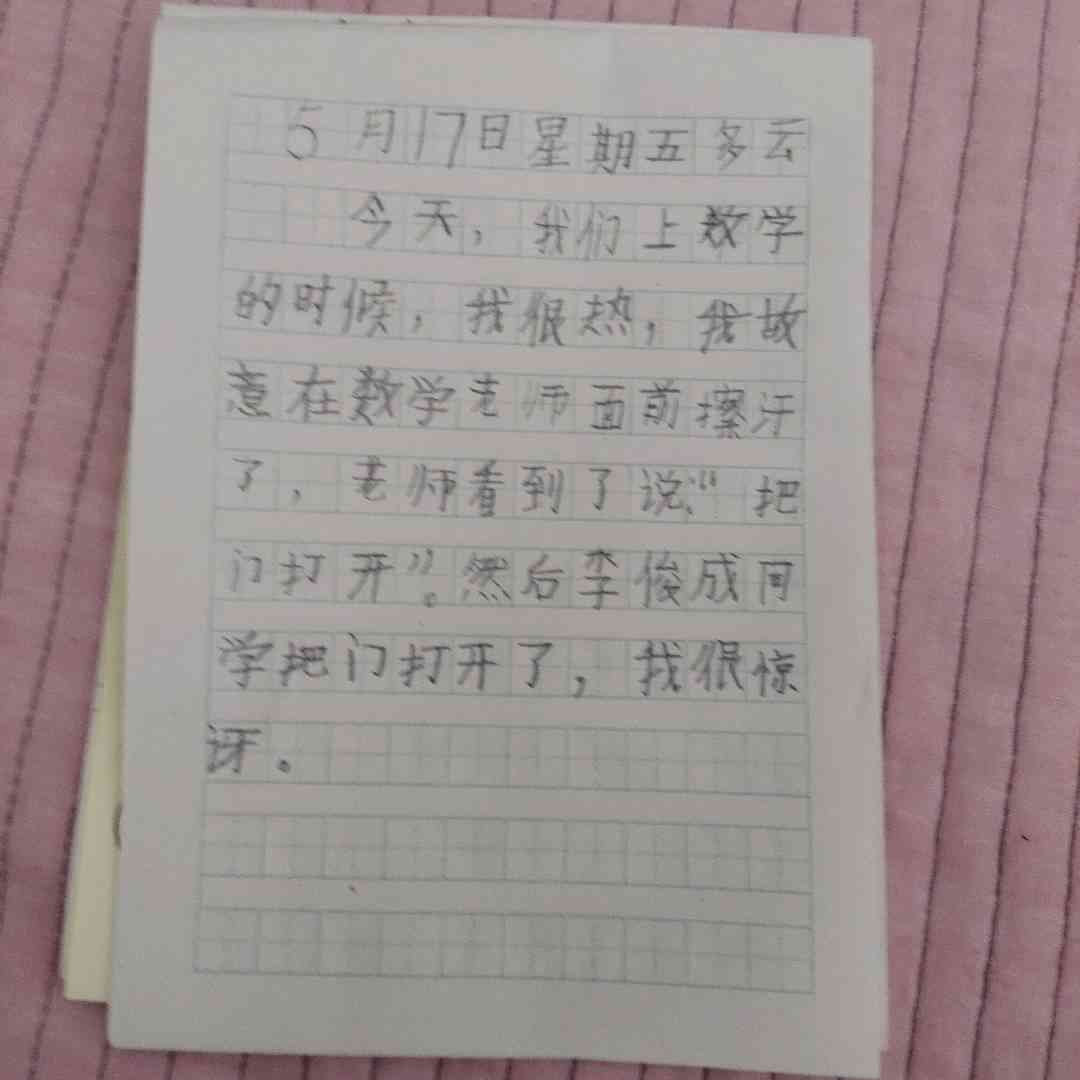 5月17日星期五多云
今天，我们上数学
的时候，我很热，我故
意在数学老师面前擦汗
了，老师看到了说：“把
门打开”。然后李俊成同
学把门打开了，我很惊
讶。